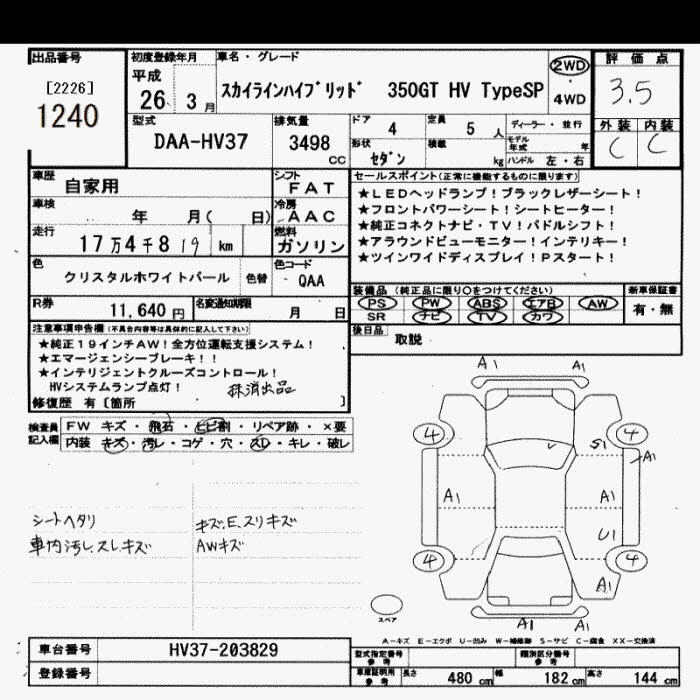 出品番号
[2226]
1240
初度登録年月
平成
26 3月
車名・グレード
スカイラインハイブリッド 350GT HV TypeSP
2WD
・
4WD
評価点
3.5
外装 内装
C C
型式
DAA-HV37
排気量
3498
CC
ドア 4
定員 5 人
ディーラー・並行
モデル年式 年
形状 セダン
積載 kg
ハンドル 左・右
車歴 自家用
シフト FAT
車検 年 月( 日)
冷房 AAC
走行 17万4千819 km
燃料 ガソリン
色 クリスタルホワイトパール 色替
色コード QAA
R券 11,640円
名変通知期限 月 日
セールスポイント(正常に機能するものに限ります)
★LEDヘッドランプ!ブラックレザーシート!
★フロントパワーシート!シートヒーター!
★純正コネクトナビ・TV!パドルシフト!
★アラウンドビューモニター!インテリキー!
★ツインワイドディスプレイ!Pスタート!
装備品(純正品に限り○をつけてください)
PS PW ABS エアB AW
SR ナビ TV カワ
新車保証書
有・無
後日品 取説
注意事項申告欄(不具合内容等は具体的に記入して下さい)
★純正19インチAW!全方位運転支援システム!
★エマージェンシーブレーキ!!
★インテリジェントクルーズコントロール!
HVシステムランプ点灯! 抹消出品
修復歴 有〔箇所 〕
検査員記入欄
FW キズ・飛石・ヒビ割・リペア跡・×要
内装 キズ・汚レ・コゲ・穴・スレ・キレ・破レ
シートヘタリ
車内汚し、スレ、キズ
キズ、E、スリキズ
AWキズ
A1 A1
4 4
S1
A1
A1 A1
U1
4 4
A1
A1 A1
スペア
A-キズ E-エクボ U-凹み W-補修跡 S-サビ C-腐食 XX-交換済
車台番号 HV37-203829
登録番号
型式指定番号 参考
類別区分番号 参考
車庫証明用 参考 長さ 480 cm 幅 182 cm 高さ 144 cm